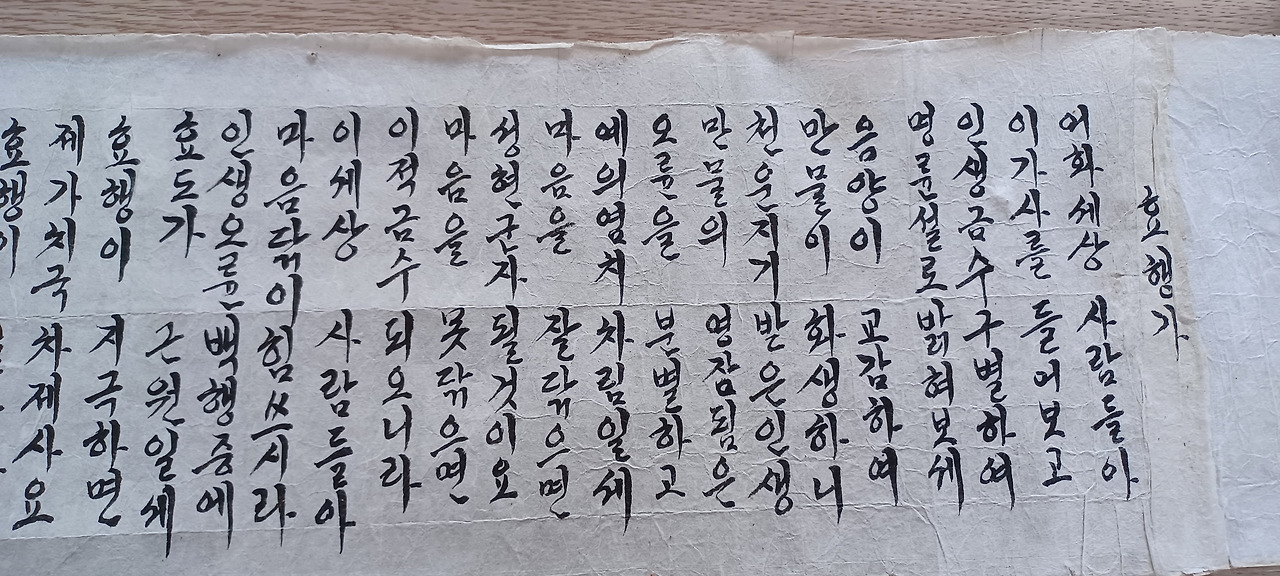 효행가
어화세상 사람들아
이가사를 들어보고
인생금수 구별하여
명륜설로 밝혀보세
음양이 교감하여
만물이 화생하니
천운지기 받은인생
만물의 영장됨은
오륜을 분별하고
예의염치 차림일세
마음을 잘닦으면
성현군자 될것이요
마음을 못닦으면
이적금수 되오니라
이세상 사람들아
마음닦이 힘쓰시라
인생오륜 백행중에
효도가 근원일세
효행이 지극하면
제가치국 차제사요
효행이